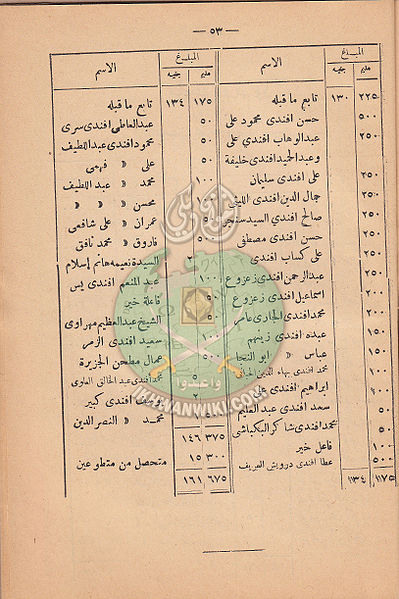 — ٥٣ —
المبلغ الاسم
مليم جنيه
٢٢٥ ١٣٠ تابع ما قبله
٥٠٠ حسن افندى محمود على
٢٥٠ عبد الوهاب افندي على
وعبد الحميد افندى خليفة
٢٥٠ على افندى سليمان
٢٥٠ جمال الدين افندى الليثى
٢٥٠ صالح افندي السيد سنجر
٢٥٠ حسن افندى مصطفى
٢٥٠ على كساب افندى
عبد الرحمن افندى زعزوع
٢٥٠ اسماعيل افندى زعزوع
محمد افندى الجارى عامر
عبده افندى زينهم
١٠٠ عباس « ابو النجا
محمد افندى بهاء الدين
ابراهيم افندى على
سعد افندى عبد العليم
محمد افندى شاكر البكباشى
١٠٠ فاعل خير
٥٠٠ عطا افندى درويش العريف
١١٧٥ ١٣٤
المبلغ الاسم
مليم جنيه
١٧٥ ١٣٤ تابع ما قبله
٥٠ عبد العاطى افندى سرى
٥٠ محمود افندى عبد اللطيف
٥٠ على « فهمى
١٠٠ محمد « عبد اللطيف
١٠٠ محسن « « «
٥٠ عمران « على شافعى
٥٠ فاروق « محمد نافق
٢ السيدة نعيمه هانم إسلام
١٠٠ عبد المنعم افندى يس
فاعلة خير
٥٠٠ الشيخ عبد العظيم مهراوى
١٠٠ سعيد افندى الزمر
عمال مطحن الجزيرة
محمد افندى عبد الخالق
٢ افندى كبير
محمد « النصر الدين
٣٧٥ ١٤٦
٣٠٠ ١٥ متحصل من متطوعين
٦٧٥ ١٦١
وأعدوا
IKHWANWIKI.COM